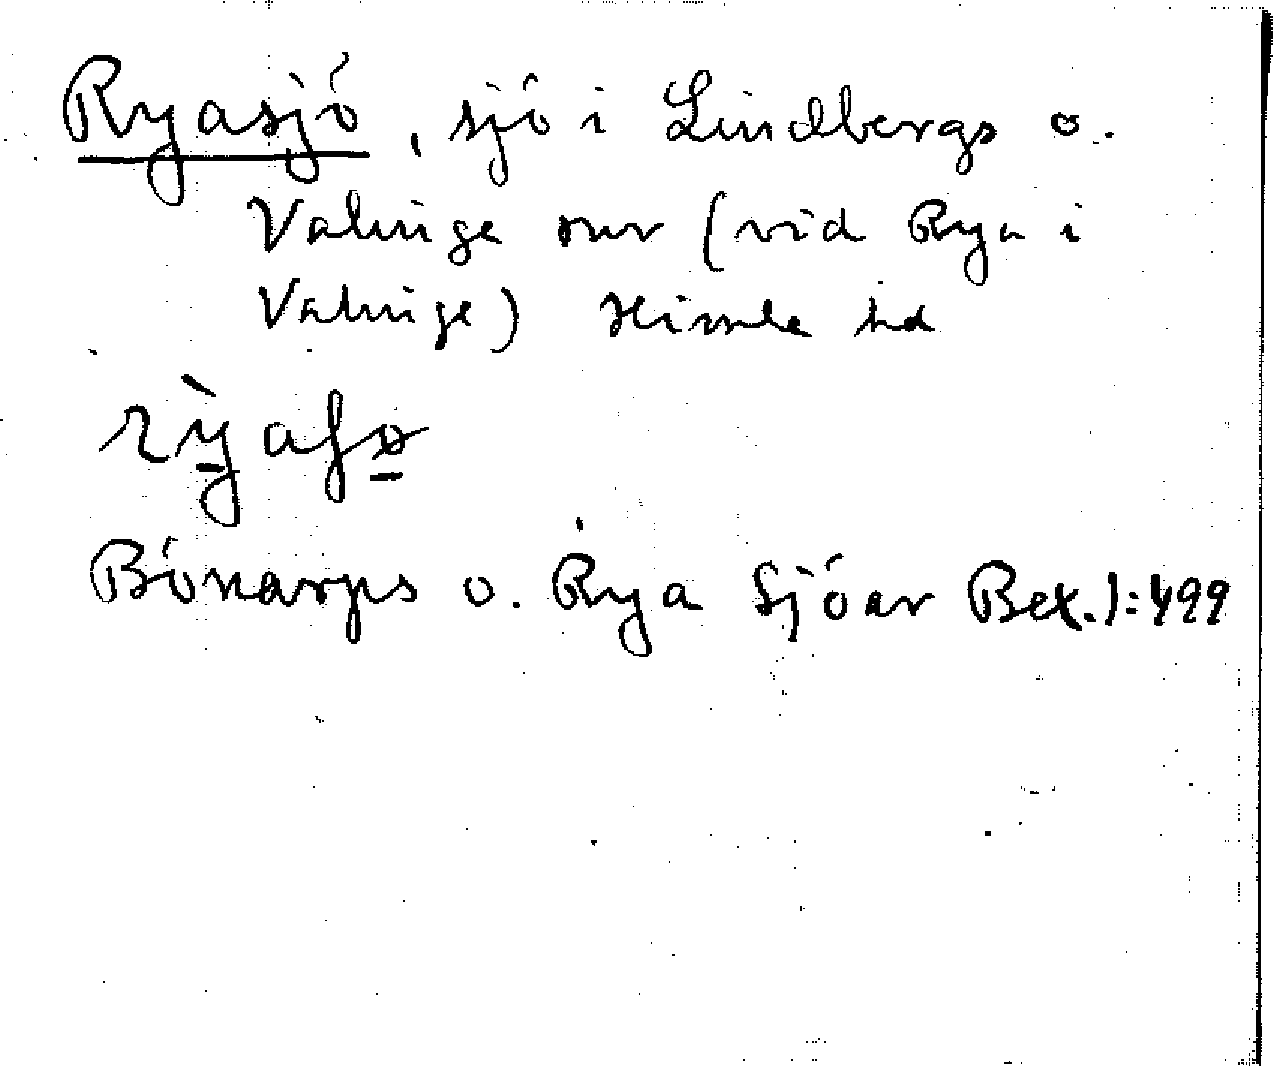 Ryasjö, sjö i Lindbergs o.
Valinge snr (vid Rya i
Valinge) Himle hd
rỳaʃø
Bönarps o. Rya Sjöar Bex. 1:499